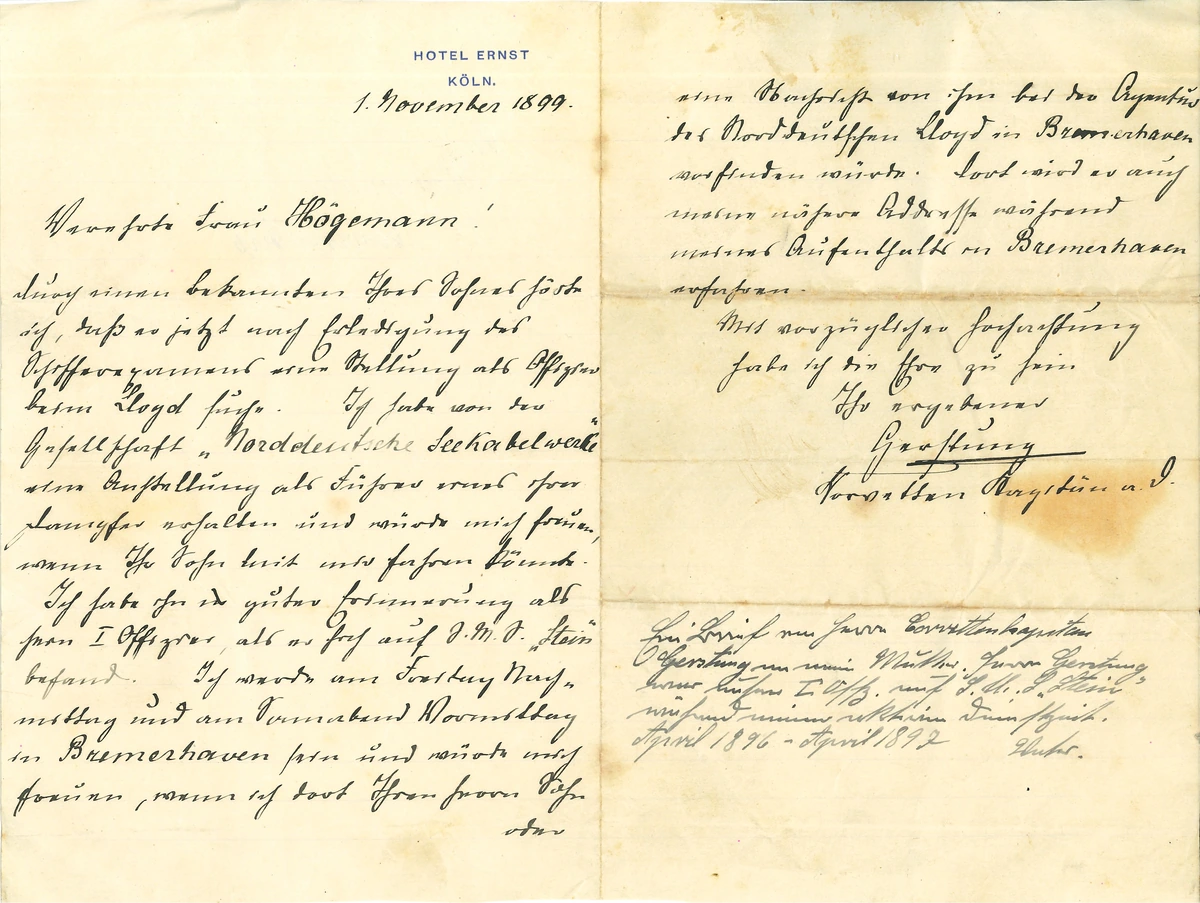 HOTEL ERNST
KÖLN.
1. November 1899.
Verehrte Frau Högemann!
durch einen bekannten Ihres Sohnes hörte
ich, daß er jetzt nach Erledigung des
Schifferexamens eine Stellung als Offizier
beim Lloyd suche. Ich habe von der
Gesellschaft „Norddeutsche Seekabelwerke"
eine Anstellung als Führer eines ihrer
Dampfer erhalten und würde mich freuen,
wenn Ihr Sohn mit mir fahren könnte.
Ich habe ihn in guter Erinnerung als
sein I Offizier, als er sich auf S.M.S. „Stein"
befand. Ich werde am Freitag Nach-
mittag und am Sonnabend Vormittag
in Bremerhaven sein und würde mich
freuen, wenn ich dort Ihren Herrn Sohn
oder
eine Nachricht von ihm bei der Agentur
des Norddeutschen Lloyd in Bremerhaven
vorfinden würde. Dort wird er auch
meine nähere Addresse während
meines Aufenthalts in Bremerhaven
erfahren.
Mit vorzüglicher Hochachtung
habe ich die Ehre zu sein
Ihr ergebener
Gerstung
Korvetten Kapitän a. D.
Ein Brief von Herrn Corvettenkapitän
Gerstung an mein Mutter. Herr Gerstung
war unser I. Offz. auf S.M.S. „Stein"
während meiner aktiven Dienstzeit.
April 1896 - April 1897